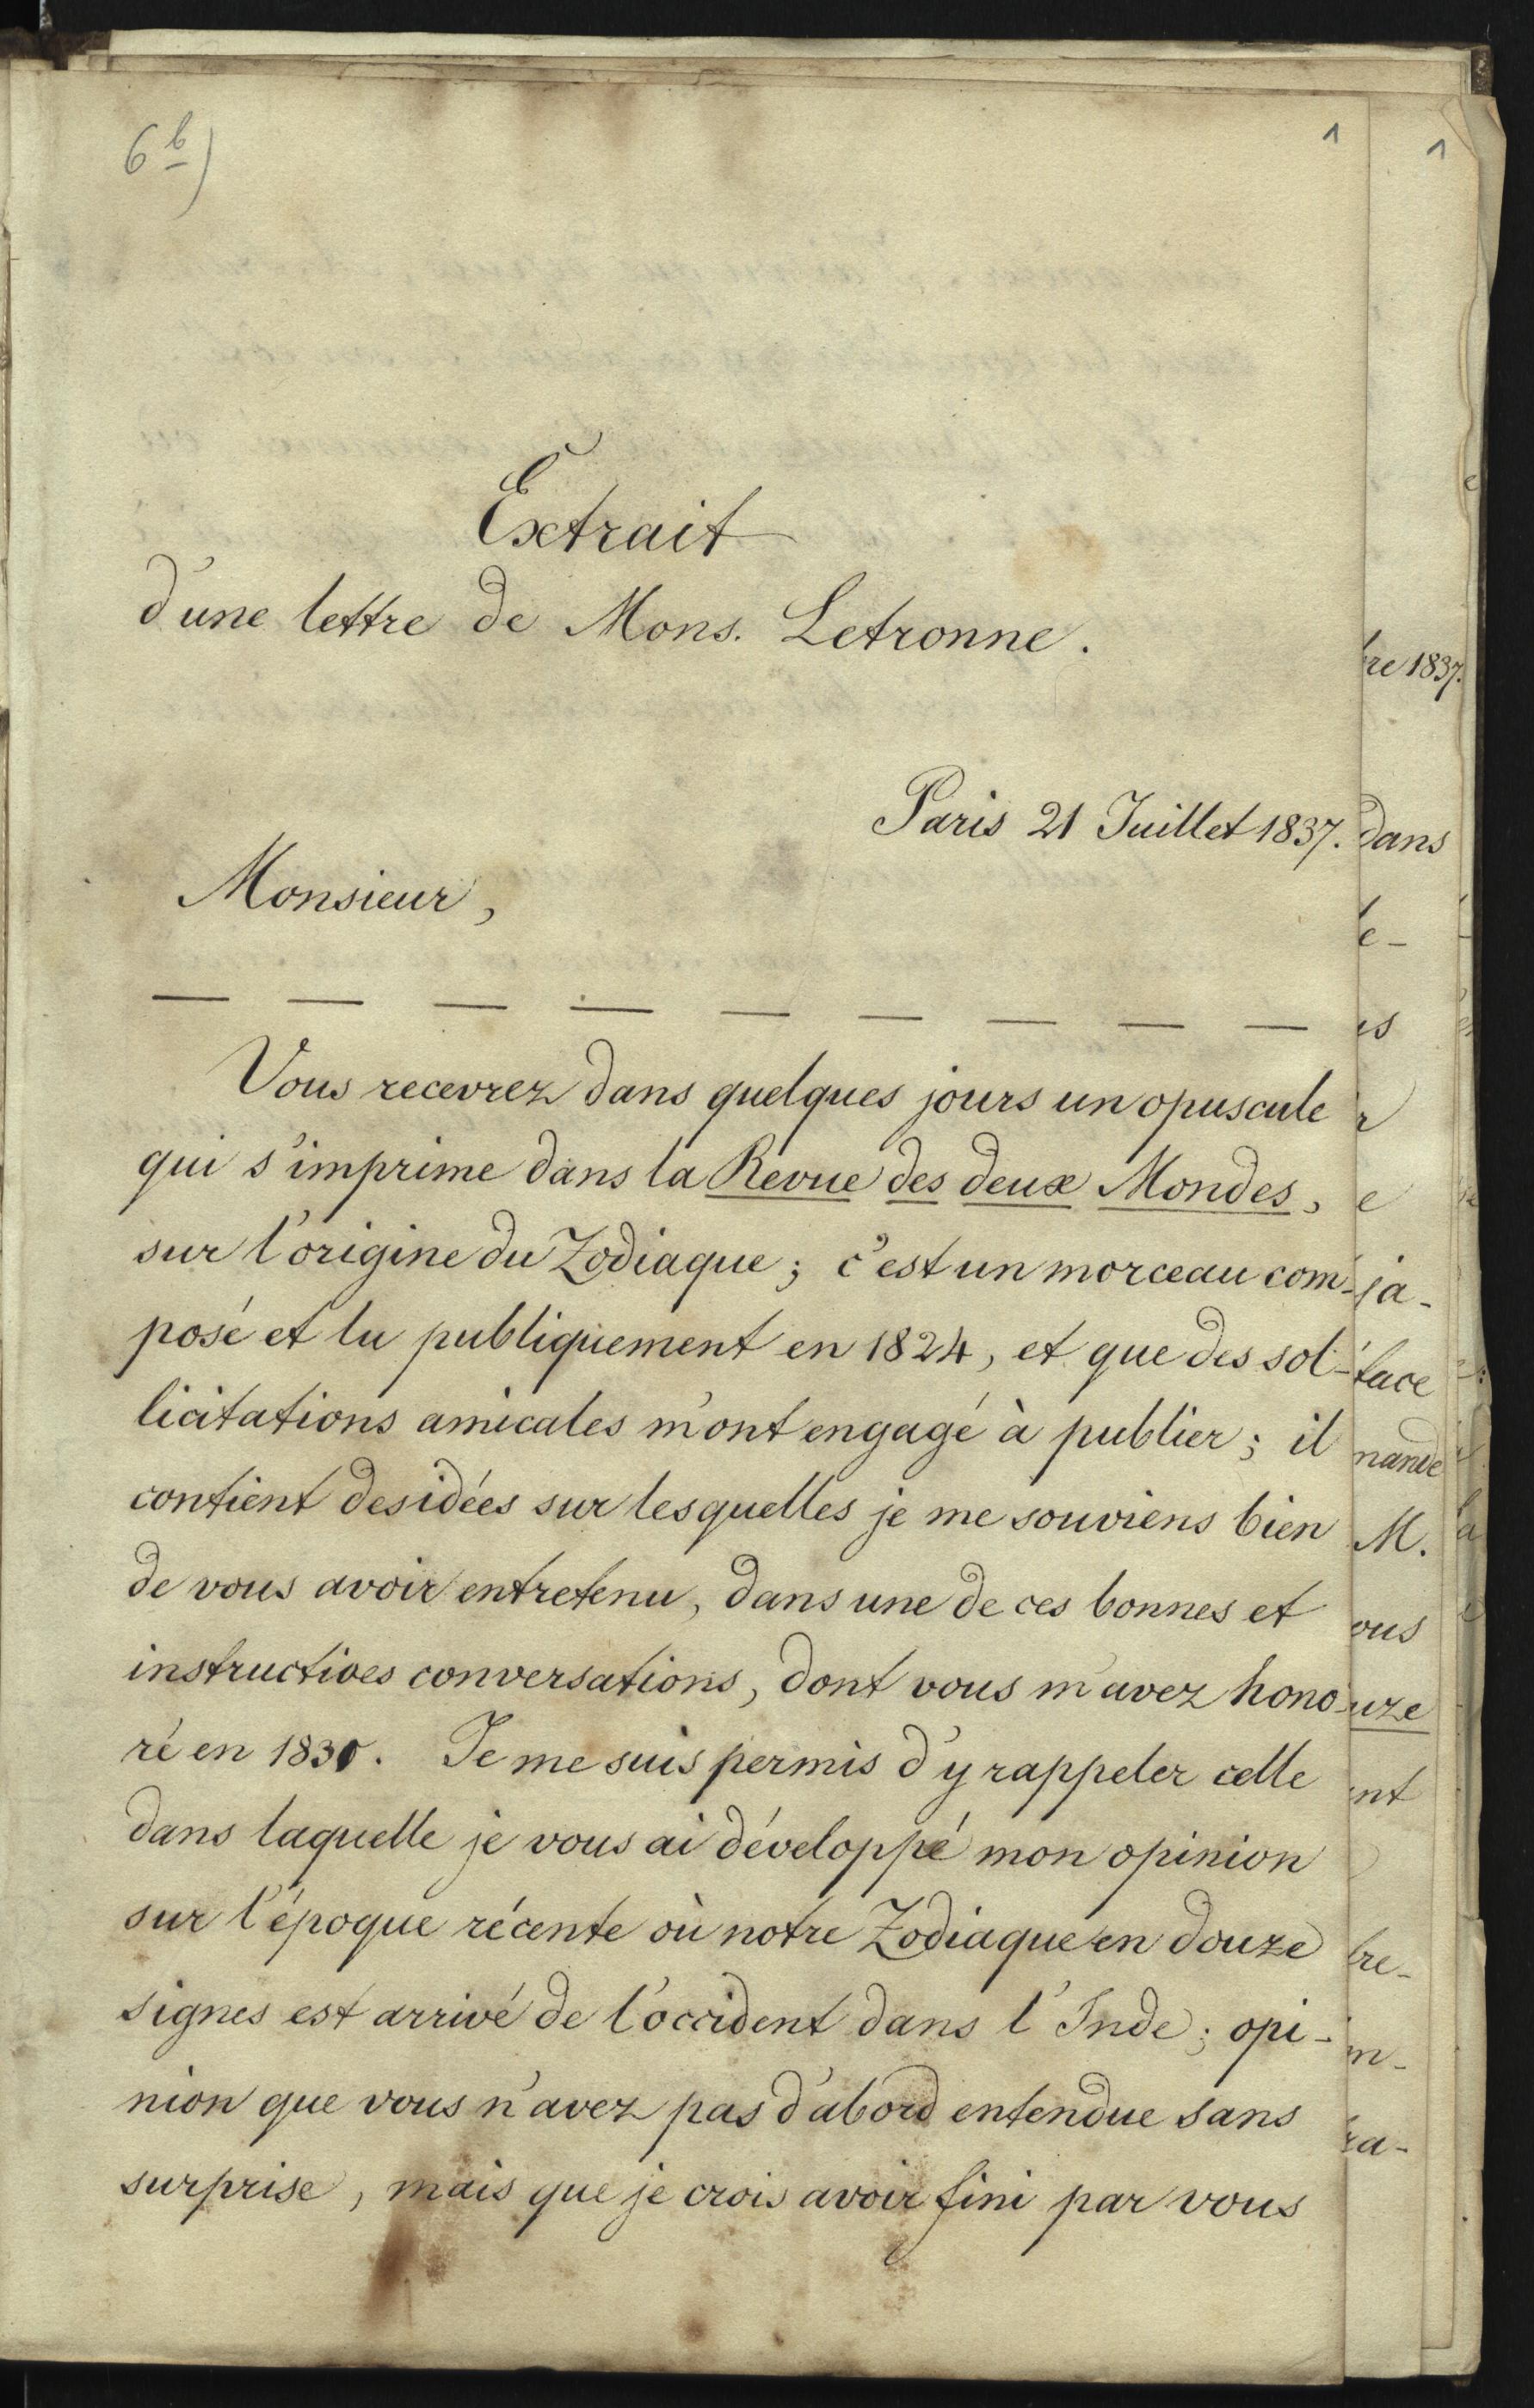 6b)
1
1
Extrait
d'une lettre de Mons. Letronne.
re 1837.
Paris 21 Juillet 1837.
dans
Monsieur,
e-
— — — — — — — — —
es
Vous recevrez dans quelques jours un opuscule
qui s'imprime dans la Revue des deux Mondes,
e
sur l'origine du Zodiaque; c'est un morceau com-
ja-
posé et lu publiquement en 1824, et que des sol-
face
licitations amicales m'ont engagé à publier; il
mande
contient des idées sur lesquelles je me souviens bien
M.
de vous avoir entretenu, dans une de ces bonnes et
ous
instructives conversations, dont vous m'avez hono-
uze
ré en 1830. Je me suis permis d'y rappeler celle
nt
dans laquelle je vous ai développé mon opinion
sur l'époque récente où notre Zodiaque en douze
bre-
signes est arrivé de l'occident dans l'Inde; opi-
in-
nion que vous n'avez pas d'abord entendue sans
ra-
surprise, mais que je crois avoir fini par vous